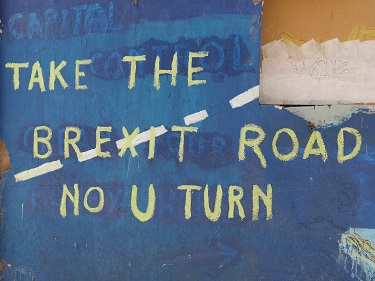 CAPITAL
CONTROL
TAKE THE
BREXIT ROAD
NO U TURN